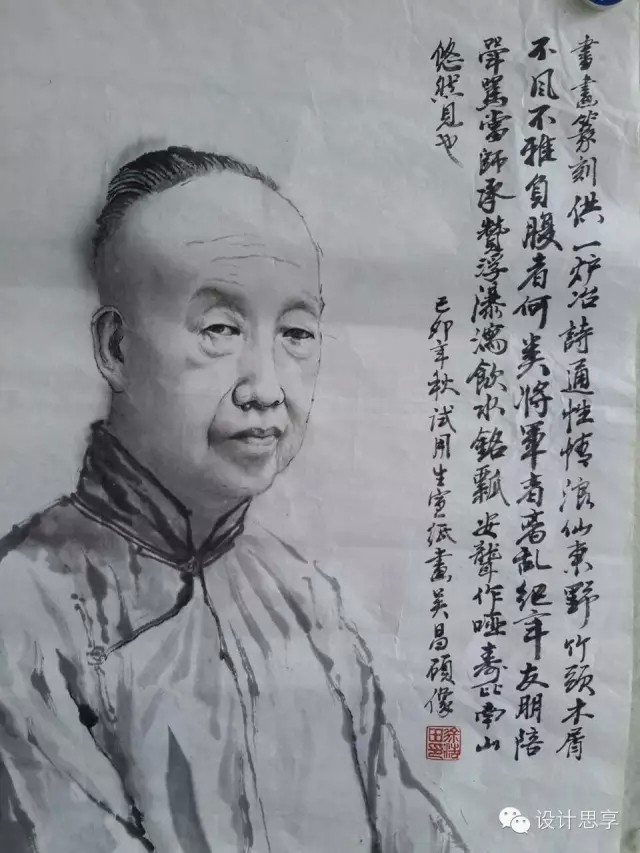 書畫篆刻供一炉冶詩通性情浪仙東野竹頭木屑
不風不雅負腹者何类將軍高高乱絕年友朋陪
犖罵當師承贊浮瀑濡飲水銘瓢安聾作啞壽正南山
悠然見也
己卯年秋试用生宣纸畫吴昌碩像
设计思享